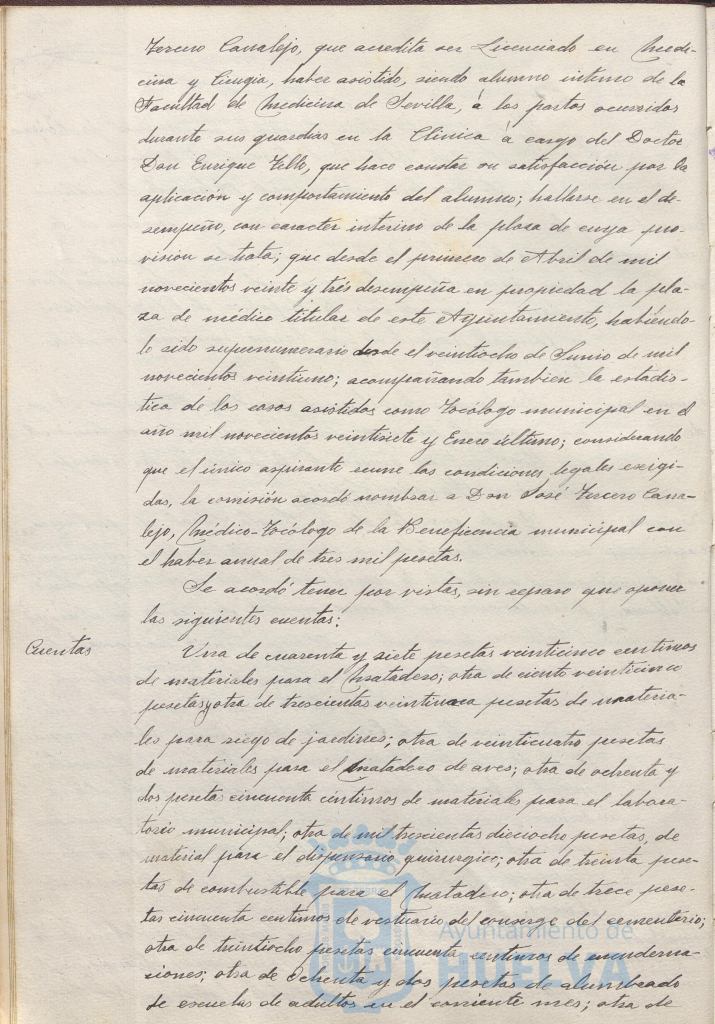 Tercero Carralejo, que acredita ser Licenciado en Medi-
cina y Cirugia, haber asistido, siendo alumno interno de la
Facultad de Medicina de Sevilla, á los partos ocurridos
durante sus guardias en la Clínica á cargo del Doctor
Don Enrique Tello, que hace constar su satisfacción por la
aplicación y comportamiento del alumno; hallarse en el de-
sempeño, con caracter interino de la plaza de cuya pro-
vision se trata; que desde el primero de Abril de mil
novecientos veinte y trés desempeña en propiedad la pla-
za de médico titular de este Ayuntamiento, habiendo-
lo sido supernumerario desde el veintiocho de Junio de mil
novecientos veintiuno; acompañando tambien la estadis-
tica de los casos asistidos como Tocólogo municipal en el
año mil novecientos veintisiete y Enero último; considerando
que el único aspirante reune las condiciones legales exigi-
das, la comisión acordó nombrar a Don José Tercero Carra-
lejo, Médico-Tocólogo de la Beneficencia municipal con
el haber anual de tres mil pesetas.
Se acordó tener por vistas, sin reparo que oponer
las siguientes cuentas:
Cuentas
Una de cuarenta y siete pesetas veinticinco centimos
de materiales para el Matadero; otra de ciento veinticinco
pesetas y otra de trescientas pesetas de materia-
les para riego de jardines; otra de veinticuatro pesetas
de materiales para el matadero de aves; otra de ochenta y
dos pesetas cincuenta céntimos de materiales para el labora-
torio municipal; otra de mil trescientas dieciocho pesetas, de
material para el dispensario quirurgico; otra de treinta pese-
tas de combustible para el Matadero; otra de trece pese-
tas cincuenta centimos de vestuario del conserge del cementerio;
otra de treintiocho pesetas cincuenta centimos de encuaderna-
ciones; otra de ochenta y dos pesetas de alumbrado
de escuelas de adultos en el corriente mes; otra de
Ayuntamiento de
HUELVA